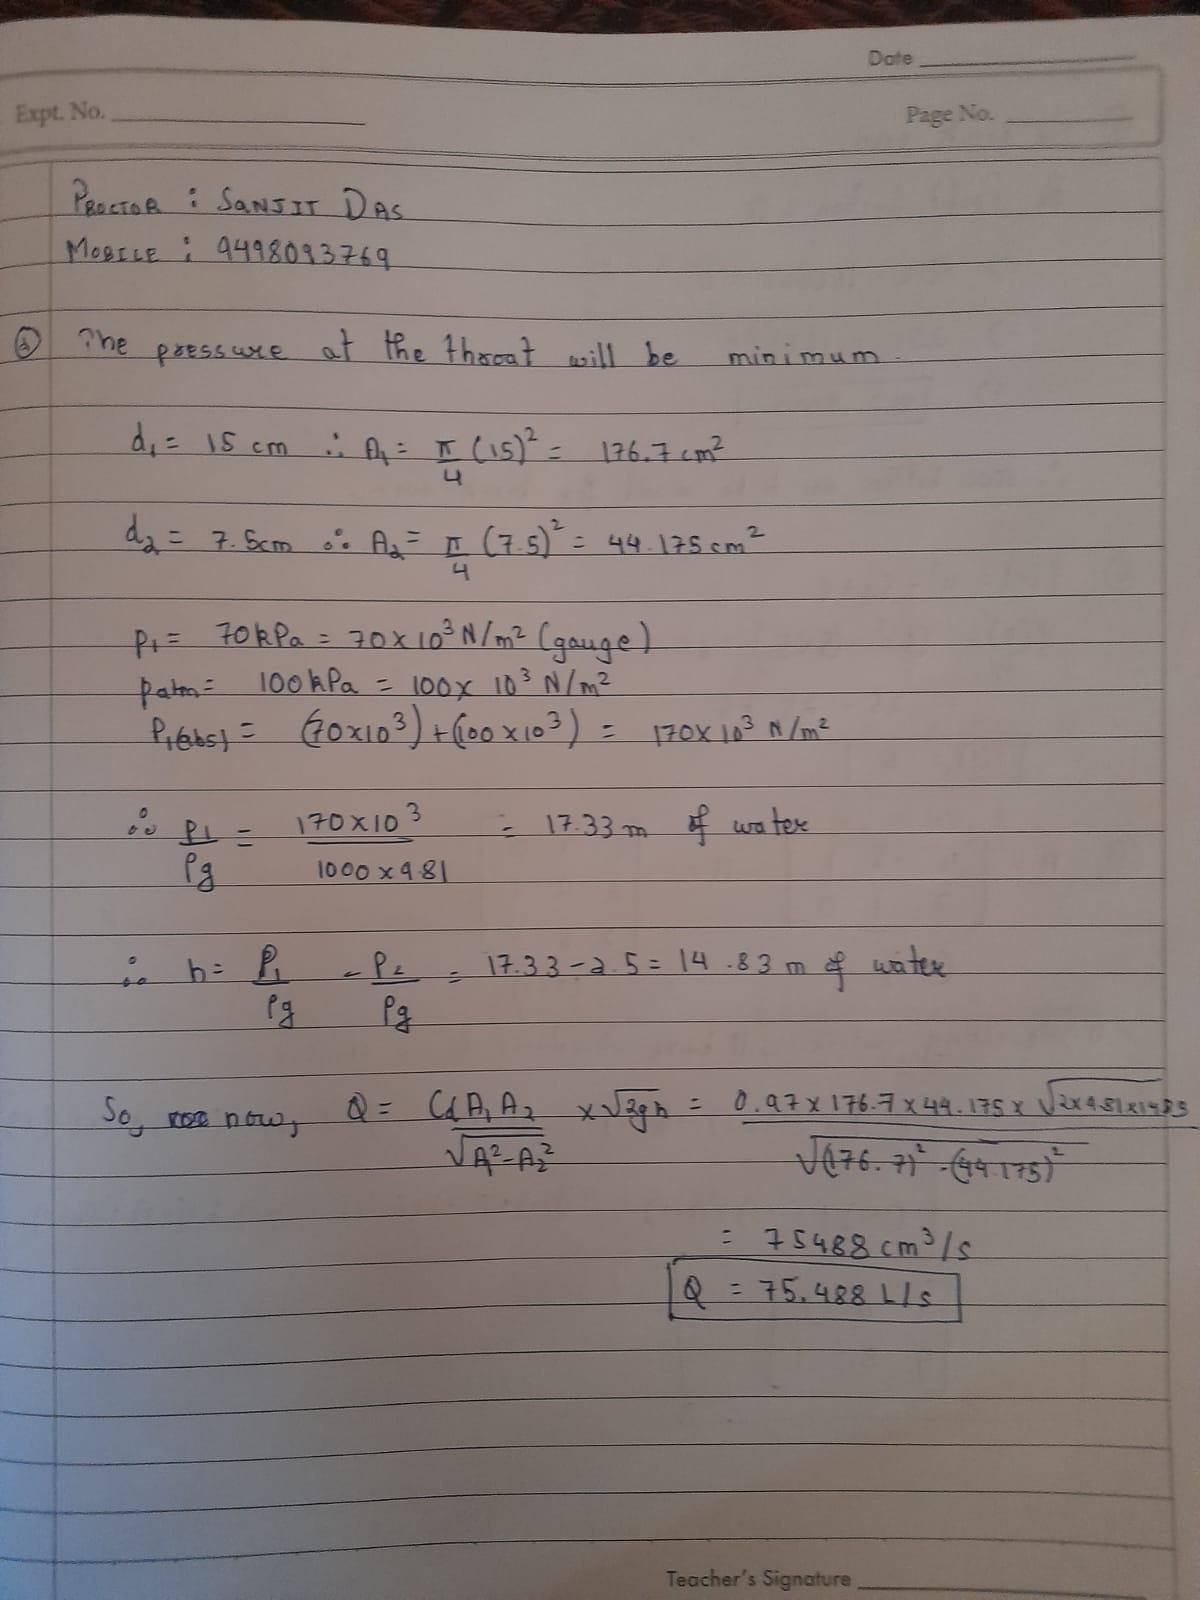 Date
Expt. No.
Page No.
PROCTOR : SANJIT DAS
MOBILE : 9498093769
③ The pressure at the throat will be minimum.
d₁ = 15 cm ∴ A₁ = π/4 (15)² = 176.7 cm²
d₂ = 7.5cm ∴ A₂ = π/4 (7.5)² = 44.175 cm²
P₁ = 70kPa = 70×10³ N/m² (gauge)
Patm = 100kPa = 100× 10³ N/m²
P₁(abs) = (70×10³)+(100×10³) = 170×10³ N/m²
∴ P₁/ρg = 170×10³/1000×9.81 = 17.33 m of water
∴ h = P₁/ρg - P₂/ρg = 17.33-2.5 = 14.83 m of water
So, now, Q = CdA₁A₂/√A₁²-A₂² × √2gh = 0.97×176.7×44.175×√2×981×1483/√(176.7)²-(44.175)²
= 75488 cm³/s
Q = 75.488 L/s
Teacher's Signature